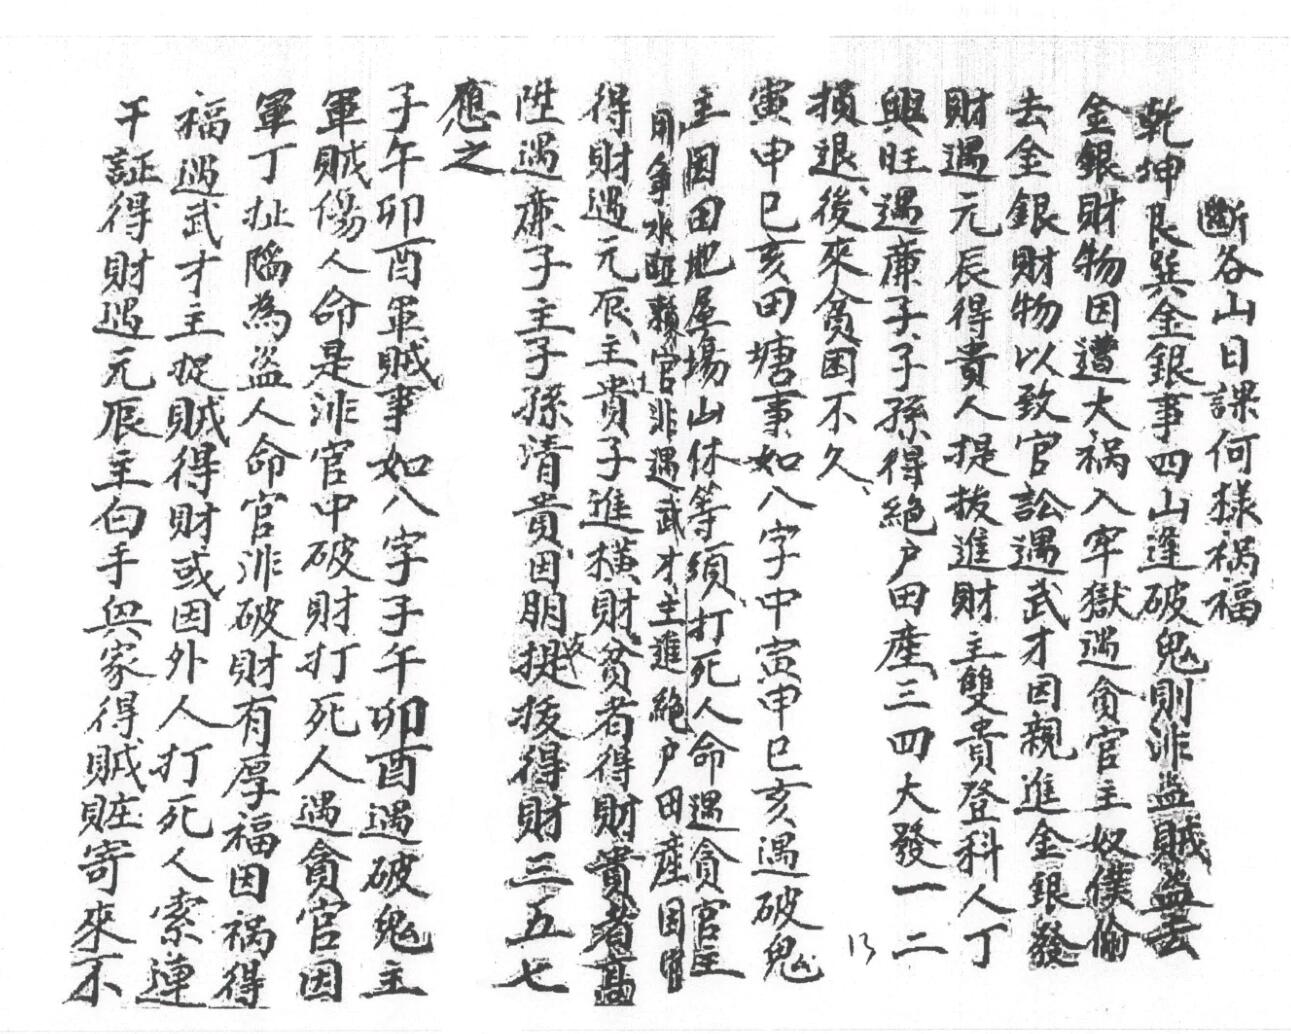 斷各山日課何樣禍福
乾坤艮巽金銀事四山逢破鬼則非盜賊盜去
金銀財物因遭大禍入牢獄遇貪官主奴僕偷
去金銀財物以致官訟遇武才因親進金銀發
財遇元辰得貴人提拔進財主雙貴登科人丁
興旺遇廉子子孫得絕户田產三四大發一二
損退後來貧困不久
13
寅申巳亥田塘事如八字中寅申巳亥遇破鬼
主因田地屋場山林等須打死人命遇貪官主
用爭水圳賴官非遇武才主進絕户田產因
得財遇元辰主貴子進橫財貧者得財貴者高
陞遇廉子主子孫清貴因朋友提拔得財三五七
應之
子午卯酉軍賊事如八字子午卯酉遇破鬼主
軍賊傷人命是非官中破財打死人遇貪官因
軍丁扯陷為盜人命官非破財有厚福因禍得
福遇武才主捉賊得財或因外人打死人索連
干証得財遇元辰主白手興家得賊賍寄來不